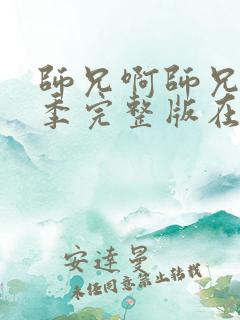 師兄啊師兄
季完整版在
安達曼
未經同意禁止轉載